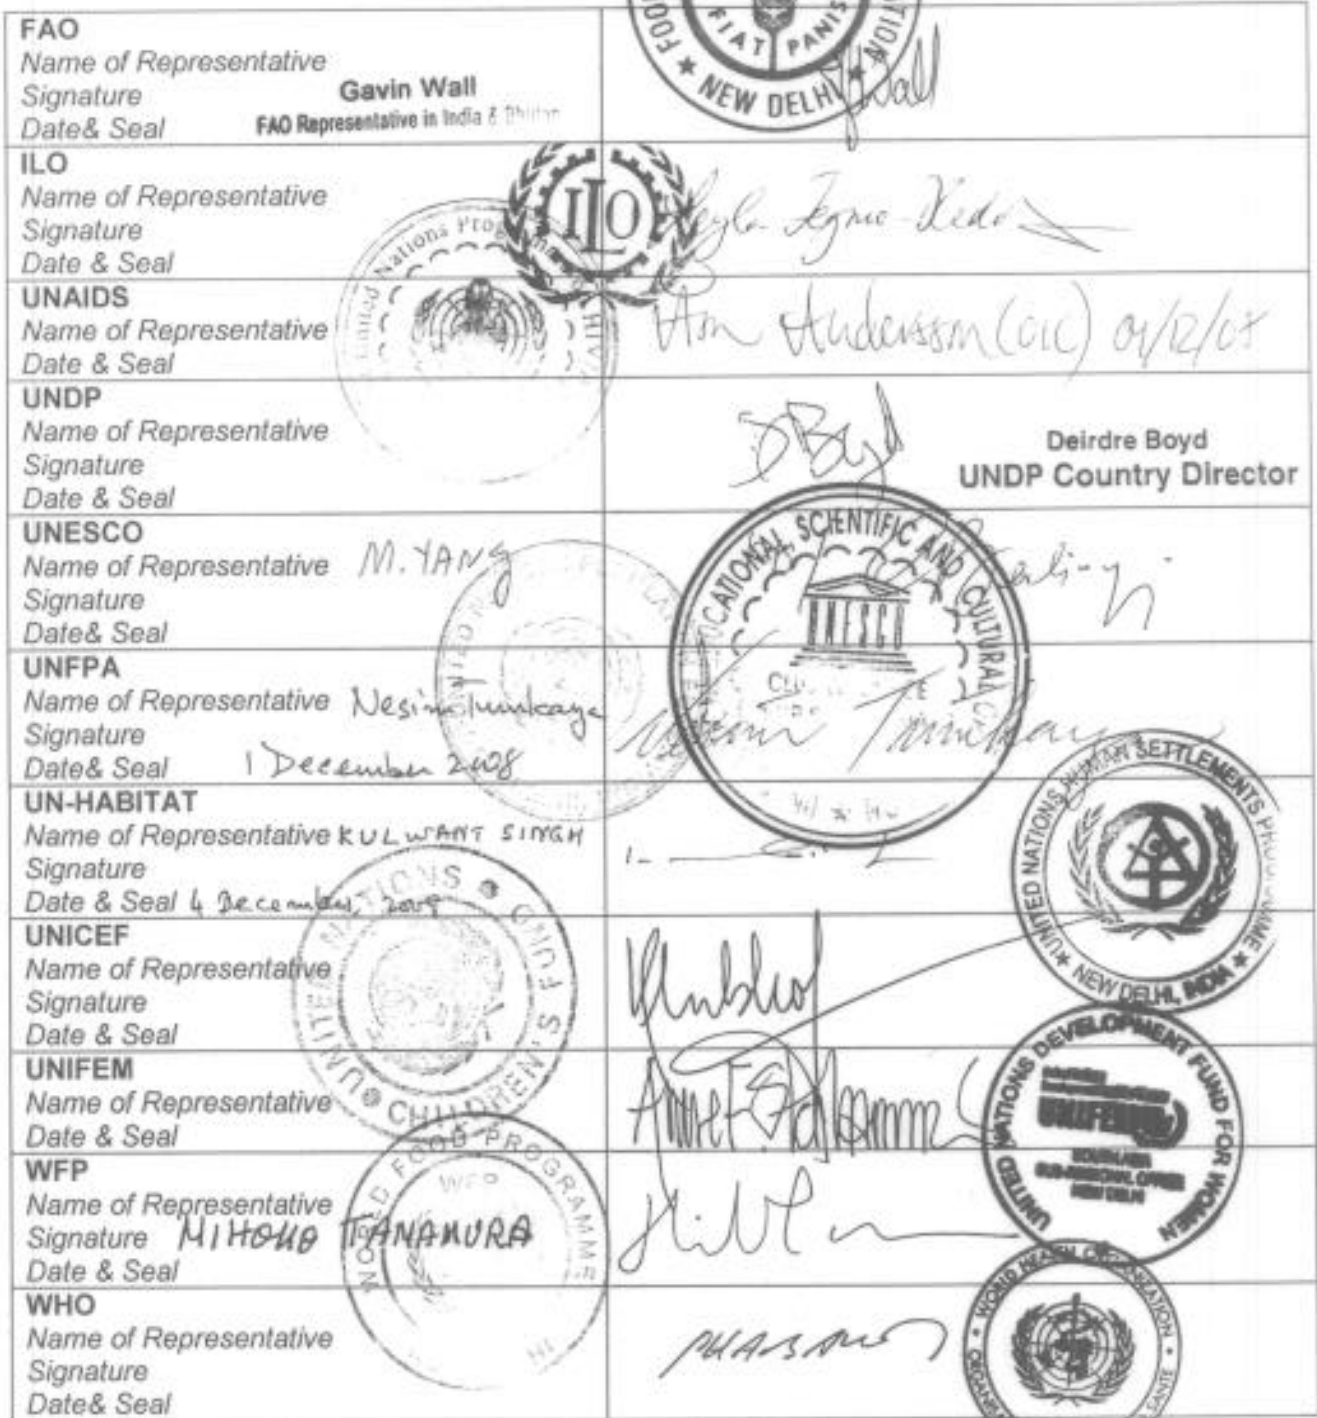 FAO
Name of Representative
Signature
Date& Seal
Gavin Wall
FAO Representative in India & Bhutan
FIAT PANIS
FOOD
NEW DELHI
Wall
ILO
Name of Representative
Signature
Date & Seal
ILO
UNAIDS
Name of Representative
Date & Seal
United Nations Programme
HIV
Andersson (OIC) 01/12/08
UNDP
Name of Representative
Signature
Date & Seal
DBoyd
Deirdre Boyd
UNDP Country Director
UNESCO
Name of Representative M. YANG
Signature
Date& Seal
EDUCATIONAL, SCIENTIFIC AND CULTURAL
UNESCO
UNFPA
Name of Representative Nesim Tumkaya
Signature
Date& Seal 1 December 2008
UN-HABITAT
Name of Representative KULWANT SINGH
Signature
Date & Seal 4 December, 2008
UNITED NATIONS HUMAN SETTLEMENTS PROGRAMME
NEW DELHI, INDIA
UNICEF
Name of Representative
Signature
Date & Seal
UNITED NATIONS
CHILDREN'S FUND
UNIFEM
Name of Representative
Date & Seal
UNITED NATIONS DEVELOPMENT FUND FOR WOMEN
UNIFEM
SOUTH ASIA
SUB-REGIONAL OFFICE
NEW DELHI
WFP
Name of Representative
Signature MIHOKO TAMAMURA
Date & Seal
WORLD FOOD PROGRAMME
WFP
WHO
Name of Representative
Signature
Date& Seal
WORLD HEALTH ORGANIZATION
SANTE